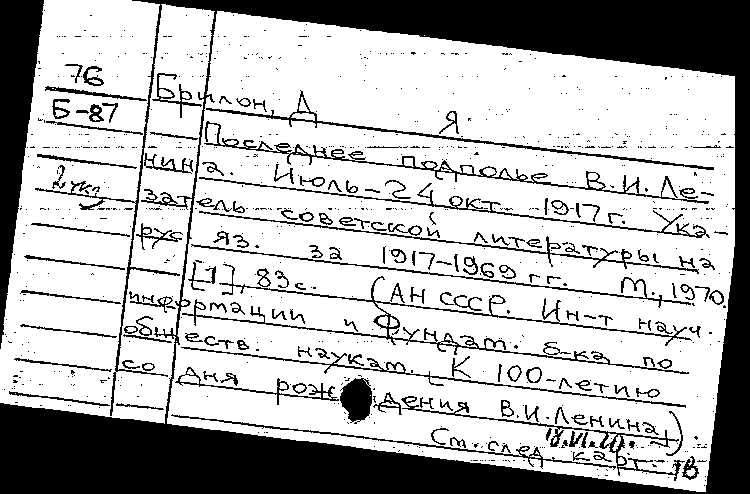 7Б
Б-87
Брилон, Д Я.
Последнее подполье В.И. Ле-
нина. Июль-24 окт. 1917 г. Ука-
затель советской литературы на
рус яз. за 1917-1969 гг. М., 1970.
[1], 83 с. (АН СССР. Ин-т науч.
информации и Фундам. б-ка по
обществ. наукам. К 100-летию
со дня рождения В.И. Ленина).
18.VI.70.
Ст. след. карт.